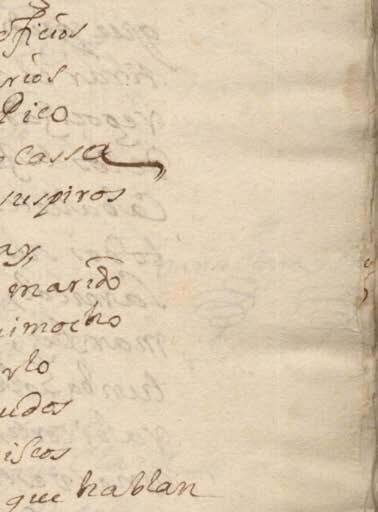 oficios
rios
Pico
o Cassa
suspiros
ay,
marido
imocho
rlo
udos
iscos
que hablan